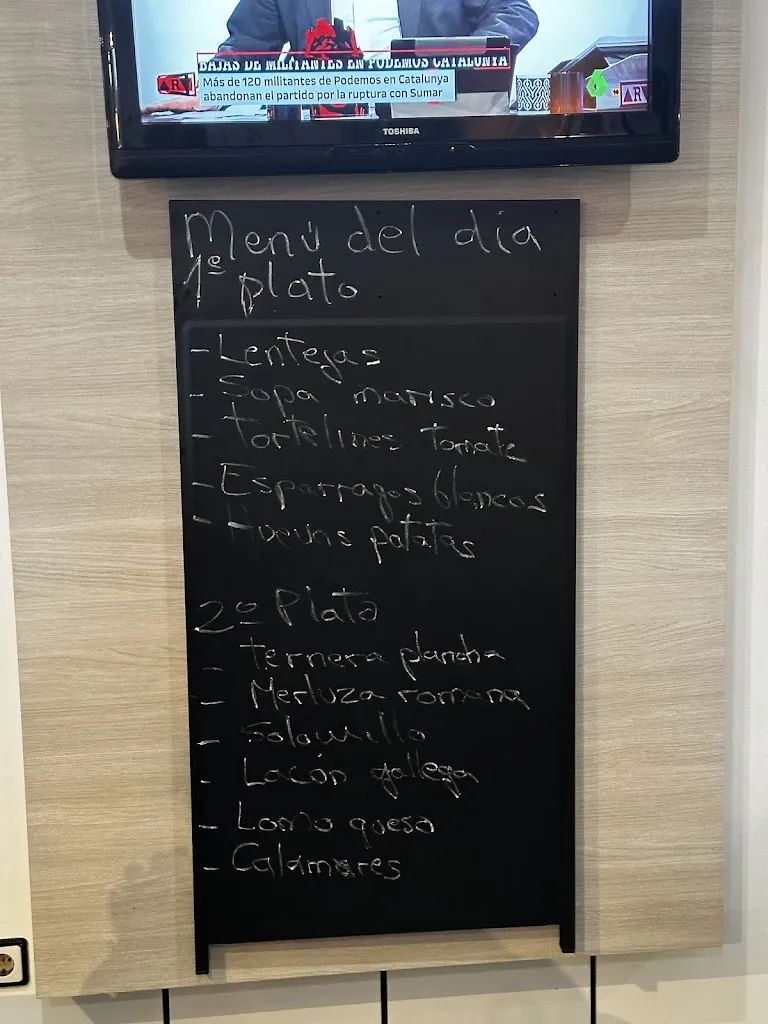 BAJAS DE MILITANTES EN PODEMOS CATALUNYA
Más de 120 militantes de Podemos en Catalunya
abandonan el partido por la ruptura con Sumar
ARV
AR
TOSHIBA
Menú del dia
1º plato
- Lentejas
- Sopa marisco
- Tortelines Tomate
- Esparragos blancos
- Huevos patatas
2º Plato
- Ternera plancha
- Merluza romana
- Solomillo
- Lacón gallega
- Lomo queso
- Calamares